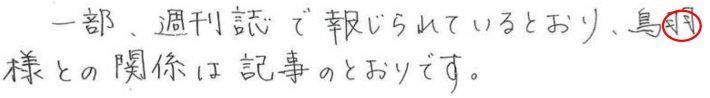 一部、週刊誌で報じられているとおり、鳥羽
様との関係は記事のとおりです。